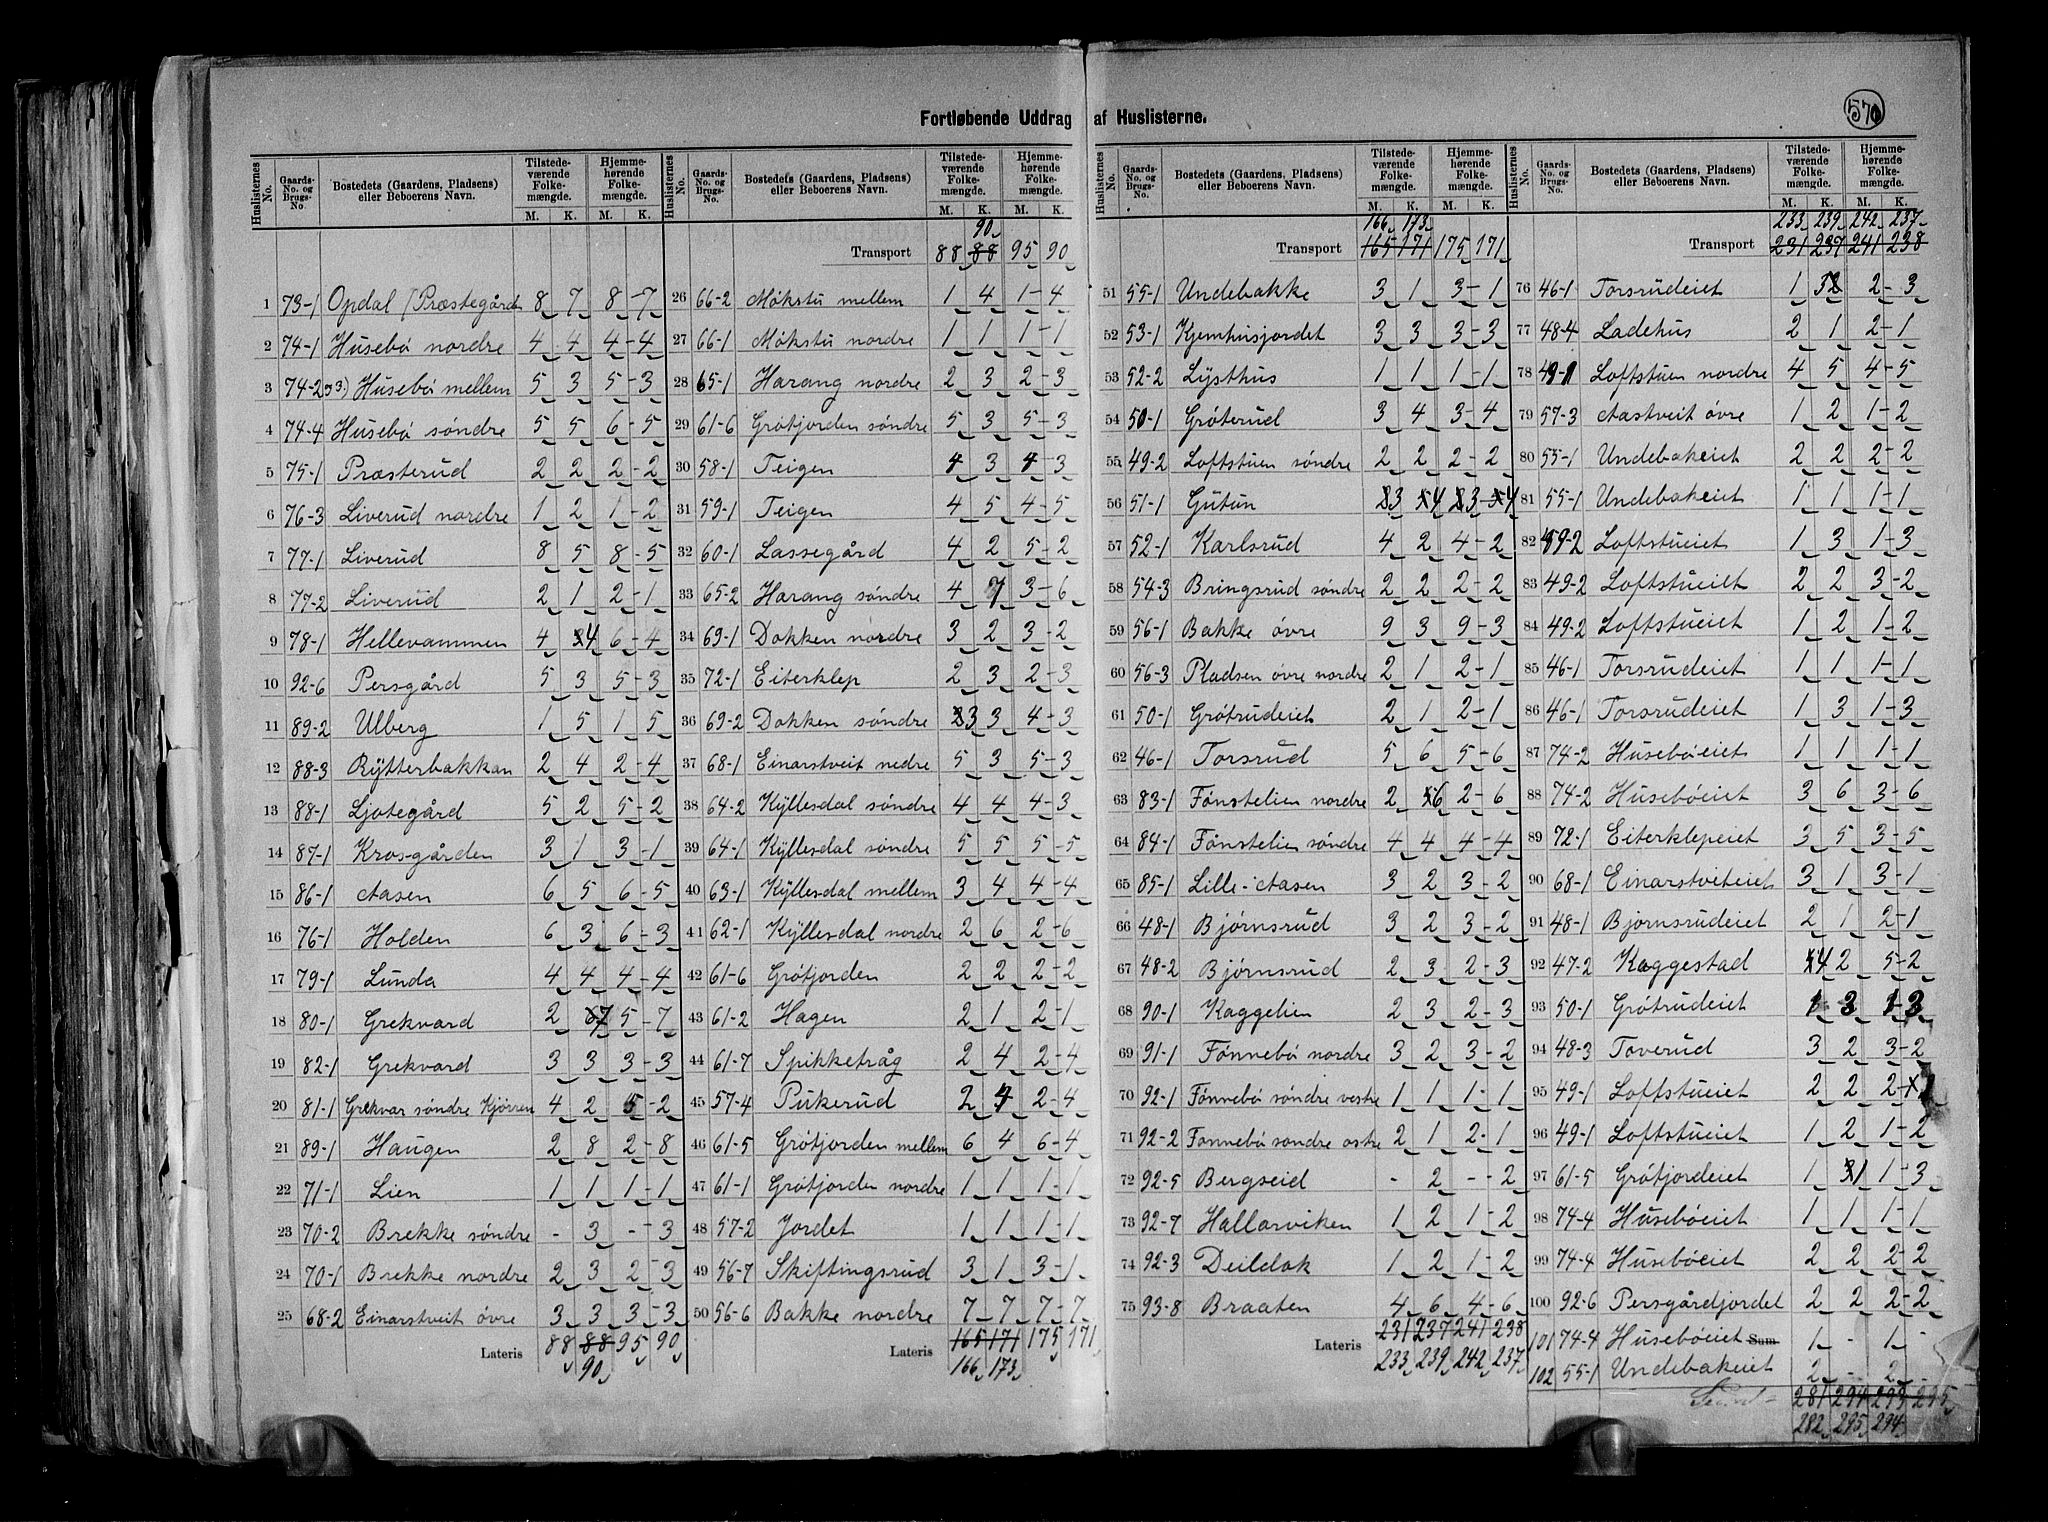 Fortløbende Uddrag af Huslisterne.
570
Huslisternes No. Gaards-No. og Brugs-No. Bostedets (Gaardens, Pladsens) eller Beboerens Navn. Tilstedeværende Folkemængde. M. K. Hjemmehørende Folkemængde. M. K.
1 73-1 Opdal (Præstegård 8 7 8-7
2 74-1 Husebø nordre 4 4 4-4
3 74-2 og 3.) Husebø mellem 5 3 5-3
4 74-4 Husebø søndre 5 5 6-5
5 75-1 Præsterud 2 2 2-2
6 76-3 Liverud nordre 1 2 1-2
7 77-1 Liverud 8 5 8-5
8 77-2 Liverud 2 1 2-1
9 78-1 Hellevammen 4 4 6-4
10 92-6 Persgård 5 3 5-3
11 89-2 Ulberg 1 5 1 5
12 88-3 Rytterbakkan 2 4 2-4
13 88-1 Ljotegård 5 2 5-2
14 87-1 Krosgården 3 1 3-1
15 86-1 Aasen 6 5 6-5
16 76-1 Holden 6 3 6-3
17 79-1 Lunda 4 4 4-4
18 80-1 Grekvard 2 7 5-7
19 82-1 Grekvard 3 3 3-3
20 81-1 Grekvar søndre Kjørren 4 2 5-2
21 89-1 Haugen 2 8 2-8
22 71-1 Lien 1 1 1-1
23 70-2 Brekke søndre - 3 - -3
24 70-1 Brekke nordre 2 3 2-3
25 68-2 Einarstveit øvre 3 3 3-3
Lateris 88 88 95 90
90
Huslisternes No. Gaards-No. og Brugs-No. Bostedets (Gaardens, Pladsens) eller Beboerens Navn. Tilstedeværende Folkemængde. M. K. Hjemmehørende Folkemængde. M. K.
90
Transport 88 88 95 90
26 66-2 Møkstu mellem 1 4 1-4
27 66-1 Møkstu nordre 1 1 1-1
28 65-1 Harang nordre 2 3 2-3
29 61-6 Grøtjorden søndre 5 3 5-3
30 58-1 Teigen 4 3 4-3
31 59-1 Teigen 4 5 4-5
32 60-1 Lassegård 4 2 5-2
33 65-2 Harang søndre 4 7 3-6
34 69-1 Dokken nordre 3 2 3-2
35 72-1 Eiterklep 2 3 2-3
36 69-2 Dokken søndre 3 3 4-3
37 68-1 Einarstveit nedre 5 3 5-3
38 64-2 Kyllesdal søndre 4 4 4-3
39 64-1 Kyllesdal søndre 5 5 5-5
40 63-1 Kyllesdal mellem 3 4 4-4
41 62-1 Kyllesdal nordre 2 6 2-6
42 61-6 Grøtjorden 2 2 2-2
43 61-2 Hagen 2 1 2-1
44 61-7 Spikketråg 2 4 2-4
45 57-4 Pukerud 2 4 2-4
46 61-5 Grøtjorden mellem 6 4 6-4
47 61-1 Grøtjorden nordre 1 1 1-1
48 57-2 Jordet 1 1 1-1
49 56-7 Skiftingsrud 3 1 3-1
50 56-6 Bakke nordre 7 7 7-7
Lateris 165 171 175 171
166 173
Huslisternes No. Gaards-No. og Brugs-No. Bostedets (Gaardens, Pladsens) eller Beboerens Navn. Tilstedeværende Folkemængde. M. K. Hjemmehørende Folkemængde. M. K.
166 173
Transport 165 171 175 171
51 55-1 Undebakke 3 1 3-1
52 53-1 Kjemhusjordet 3 3 3-3
53 52-2 Lysthus 1 1 1-1
54 50-1 Grøterud 3 4 3-4
55 49-2 Loftstuen søndre 2 2 2-2
56 51-1 Gutun 3 4 3 4
57 52-1 Karlsrud 4 2 4-2
58 54-3 Bringsrud søndre 2 2 2-2
59 56-1 Bakke øvre 9 3 9-3
60 56-3 Pladsen øvre nordre 2 1 2-1
61 50-1 Grøtrudeiet 2 1 2-1
62 46-1 Torsrud 5 6 5-6
63 83-1 Fønstelien nordre 2 6 2-6
64 84-1 Fønstelien søndre 4 4 4-4
65 85-1 Lille-Aasen 3 2 3-2
66 48-1 Bjørnsrud 3 2 3-2
67 48-2 Bjørnsrud 2 3 2-3
68 90-1 Kaggelien 2 3 2-3
69 91-1 Fønnebø nordre 3 2 3-2
70 92-1 Fønnebø søndre vestre 1 1 1-1
71 92-2 Fønnebø søndre østre 2 1 2-1
72 92-5 Bergseid - 2 - -2
73 92-7 Hallarviken 1 2 1-2
74 92-3 Deildok 1 2 1-2
75 93-8 Braaten 4 6 4-6
Lateris 231 237 241 238
233 239 242 237
Huslisternes No. Gaards-No. og Brugs-No. Bostedets (Gaardens, Pladsens) eller Beboerens Navn. Tilstedeværende Folkemængde. M. K. Hjemmehørende Folkemængde. M. K.
233 239 242 237
Transport 231 237 241 238
76 46-1 Torsrudeiet 1 2-3
77 48-4 Ladehus 2 1 2-1
78 49-1 Loftstuen nordre 4 5 4-5
79 57-3 Aastveit øvre 1 2 1-2
80 55-1 Undebakeiet 2 2 2-2
81 55-1 Undebakeiet 1 1 1-1
82 49-2 Loftstueiet 1 3 1-3
83 49-2 Loftstueiet 2 2 3-2
84 49-2 Loftstueiet 1 2 1-2
85 46-1 Torsrudeiet 1 1 1-1
86 46-1 Torsrudeiet 1 3 1-3
87 74-2 Husebøeiet 1 1 1-1
88 74-2 Husebøeiet 3 6 3-6
89 72-1 Eiterklepeiet 3 5 3-5
90 68-1 Einarstveteiet 3 1 3-1
91 48-1 Bjørnsrudeiet 2 1 2-1
92 47-2 Kaggestad 4 2 5-2
93 50-1 Grøtrudeiet 1 3 1-3
94 48-3 Toverud 3 2 3-2
95 49-1 Loftstueiet 2 2 2-
96 49-1 Loftstueiet 1 2 1-2
97 61-5 Grøtjordeiet 1 1 1-3
98 74-4 Husebøeiet 1 1 1-1
99 74-4 Husebøeiet 2 2 2-2
100 92-6 Persgårdjordet 2 2 2-2
101 74-4 Husebøeiet Sum 1 - 1 -
102 55-1 Undebakeiet 2 - 2 -
Sum 281 294 293 295
282 295 294